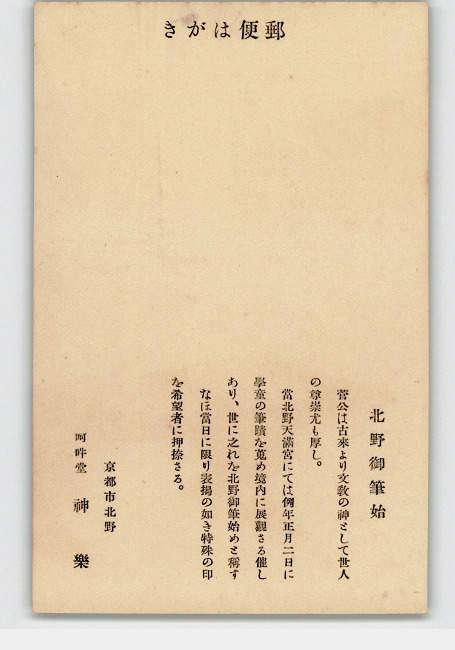 郵便はがき
北野御筆始
菅公は古來より文教の神として世人
の尊崇尤も厚し。
當北野天滿宮にては例年正月二日に
學童の筆蹟を蒐め境内に展觀さる催し
あり、世に之れを北野御筆始めと稱す
なほ當日に限り表揭の如き特殊の印
を希望者に押捺さる。
京都市北野
畔堂 神樂